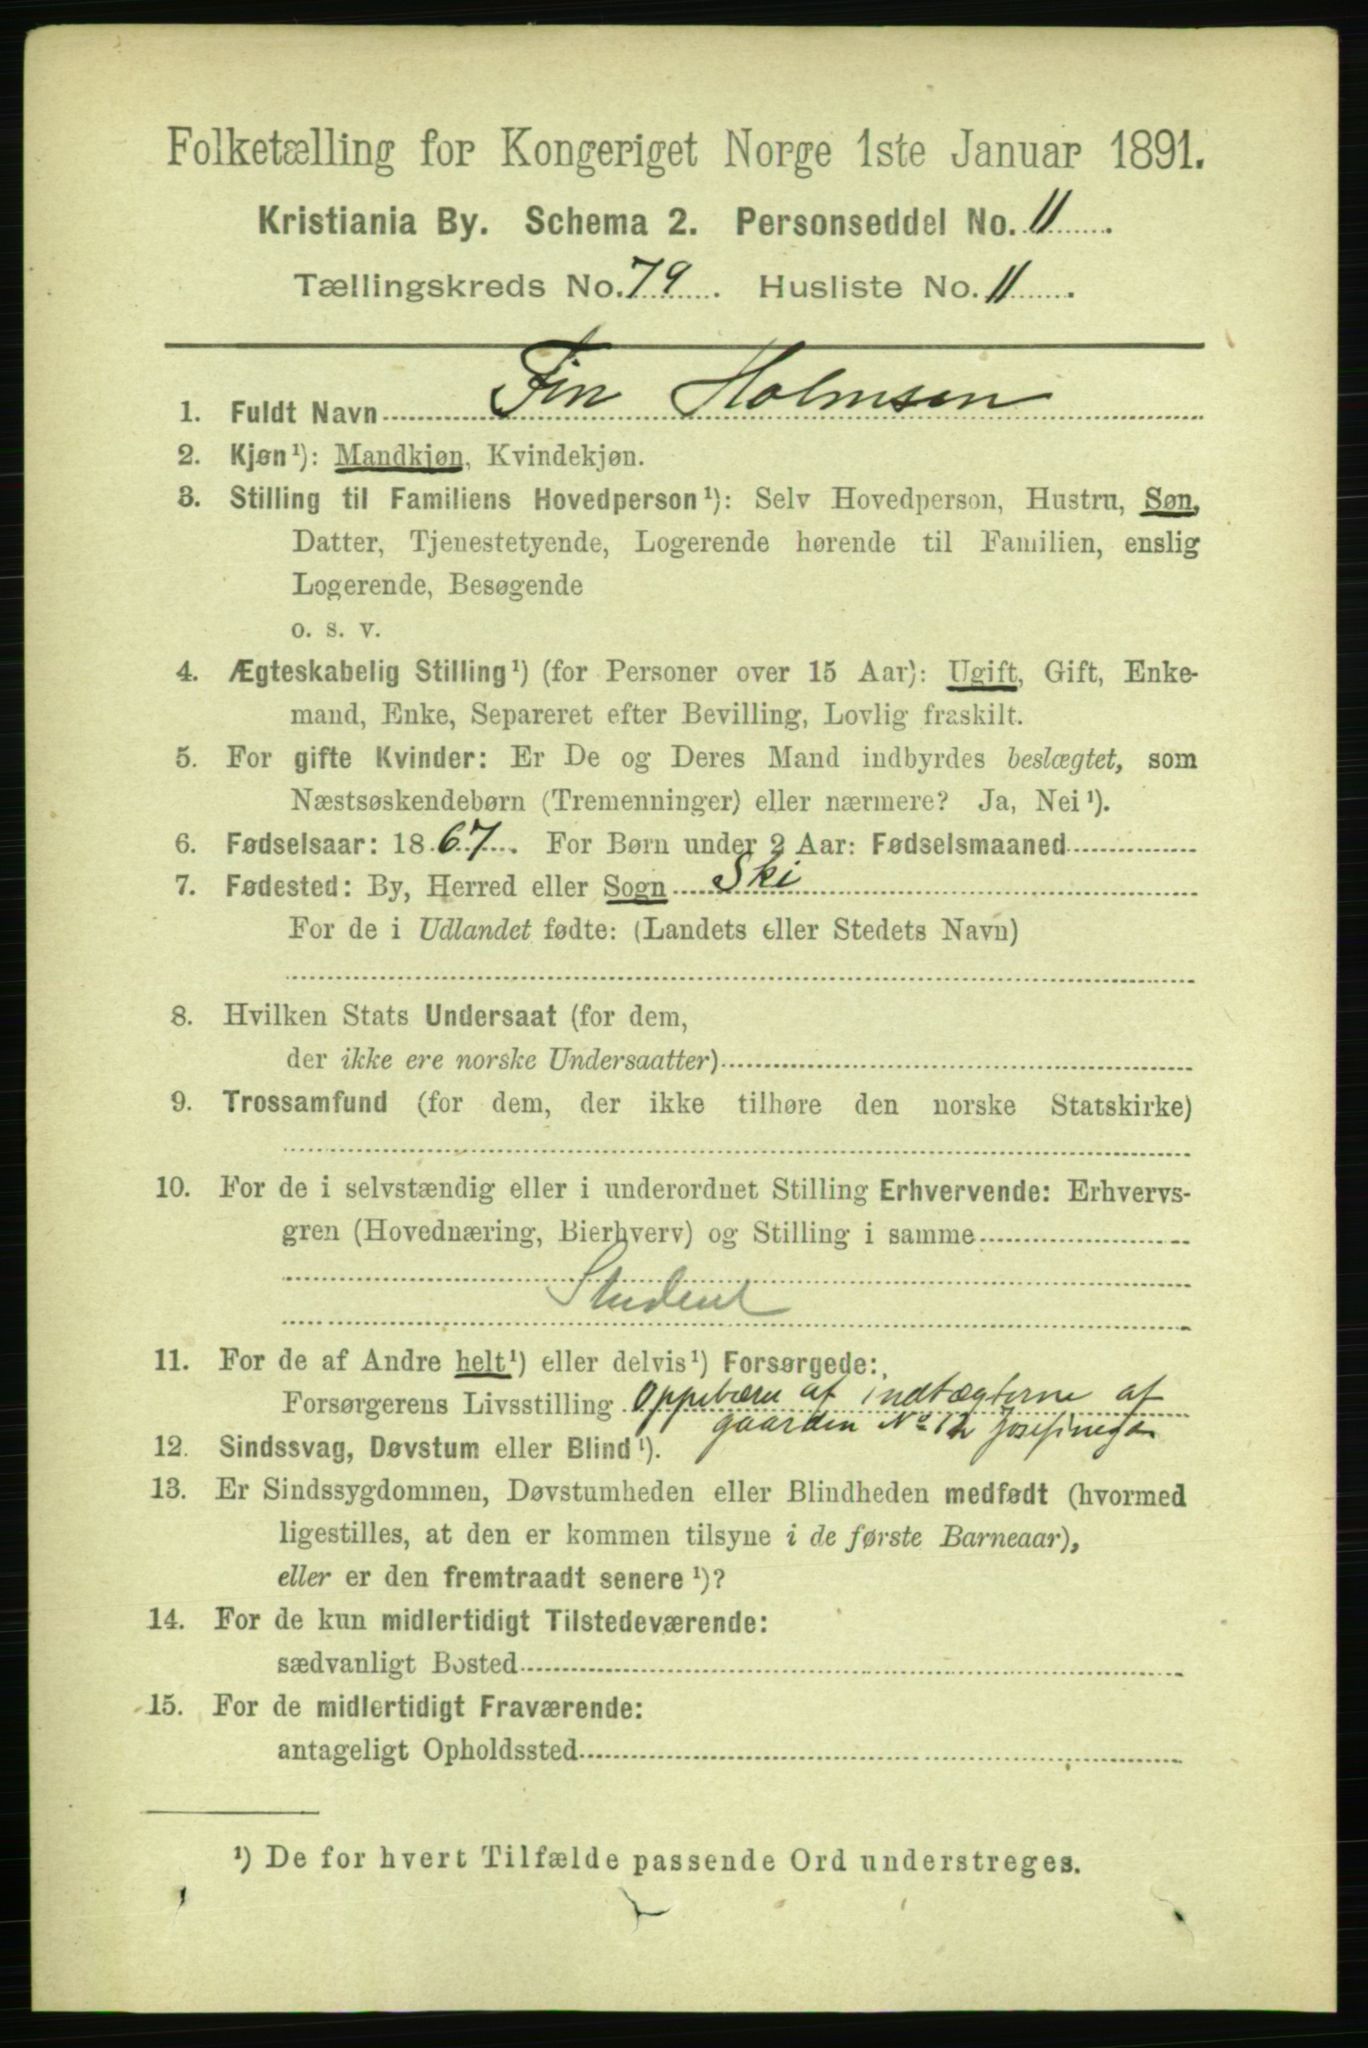 Folketælling for Kongeriget Norge 1ste Januar 1891.
Kristiania By. Schema 2. Personseddel No. 11
Tællingskreds No. 79. Husliste No. 11.
1. Fuldt Navn Fin Holmsen
2. Kjøn¹): Mandkjøn, Kvindekjøn.
3. Stilling til Familiens Hovedperson¹): Selv Hovedperson, Hustru, Søn,
Datter, Tjenestetyende, Logerende hørende til Familien, enslig
Logerende, Besøgende
o. s. v.
4. Ægteskabelig Stilling¹) (for Personer over 15 Aar): Ugift, Gift, Enke-
mand, Enke, Separeret efter Bevilling, Lovlig fraskilt.
5. For gifte Kvinder: Er De og Deres Mand indbyrdes beslægtet, som
Næstsøskendebørn (Tremenninger) eller nærmere? Ja, Nei¹).
6. Fødselsaar: 1867. For Børn under 2 Aar: Fødselsmaaned
7. Fødested: By, Herred eller Sogn Ski
For de i Udlandet fødte: (Landets eller Stedets Navn)
8. Hvilken Stats Undersaat (for dem,
der ikke ere norske Undersaatter)
9. Trossamfund (for dem, der ikke tilhøre den norske Statskirke)
10. For de i selvstændig eller i underordnet Stilling Erhvervende: Erhvervs-
gren (Hovednæring, Bierhverv) og Stilling i samme
Student
11. For de af Andre helt¹) eller delvis¹) Forsørgede:
Forsørgerens Livsstilling Oppebærer af indtægterne af
gaarden No 12 Josefinegd
12. Sindssvag, Døvstum eller Blind¹).
13. Er Sindssygdommen, Døvstumheden eller Blindheden medfødt (hvormed
ligestilles, at den er kommen tilsyne i de første Barneaar),
eller er den fremtraadt senere¹)?
14. For de kun midlertidigt Tilstedeværende:
sædvanligt Bosted
15. For de midlertidigt Fraværende:
antageligt Opholdssted
¹) De for hvert Tilfælde passende Ord understreges.